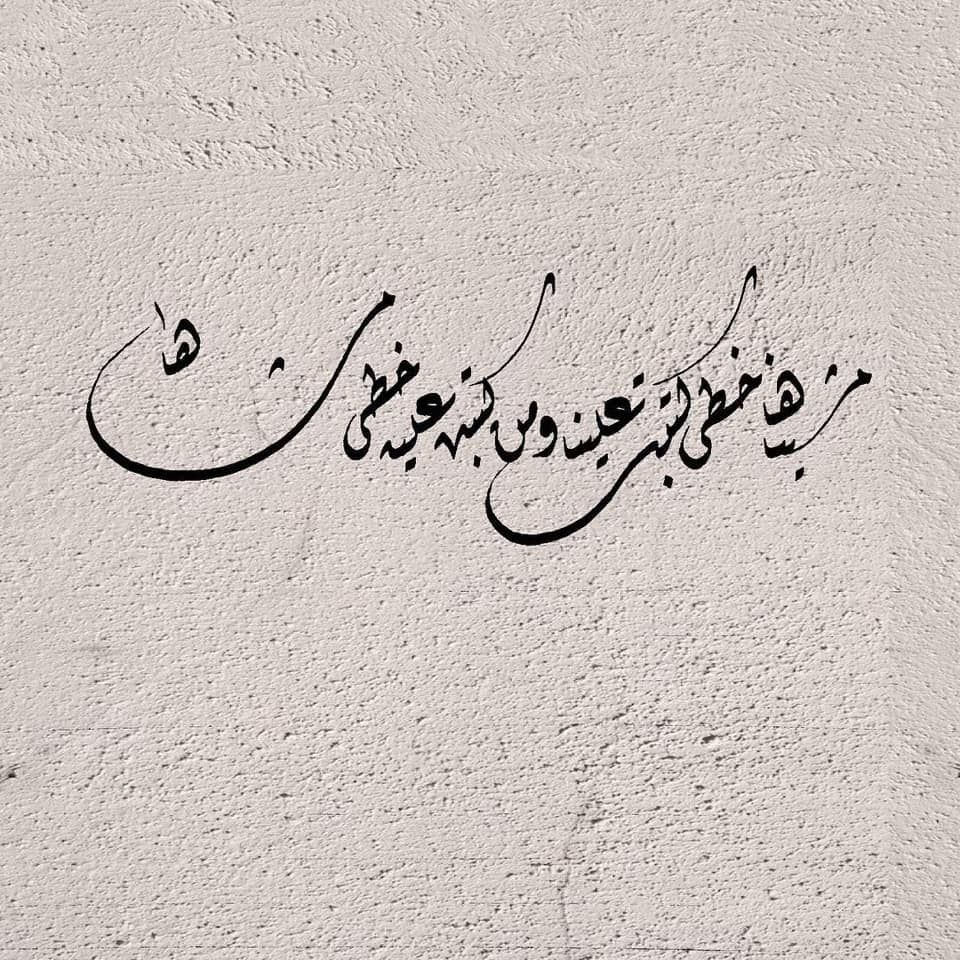 مشيناها خطى كتبت علينا ومن كتبت عليه خطى مشاها